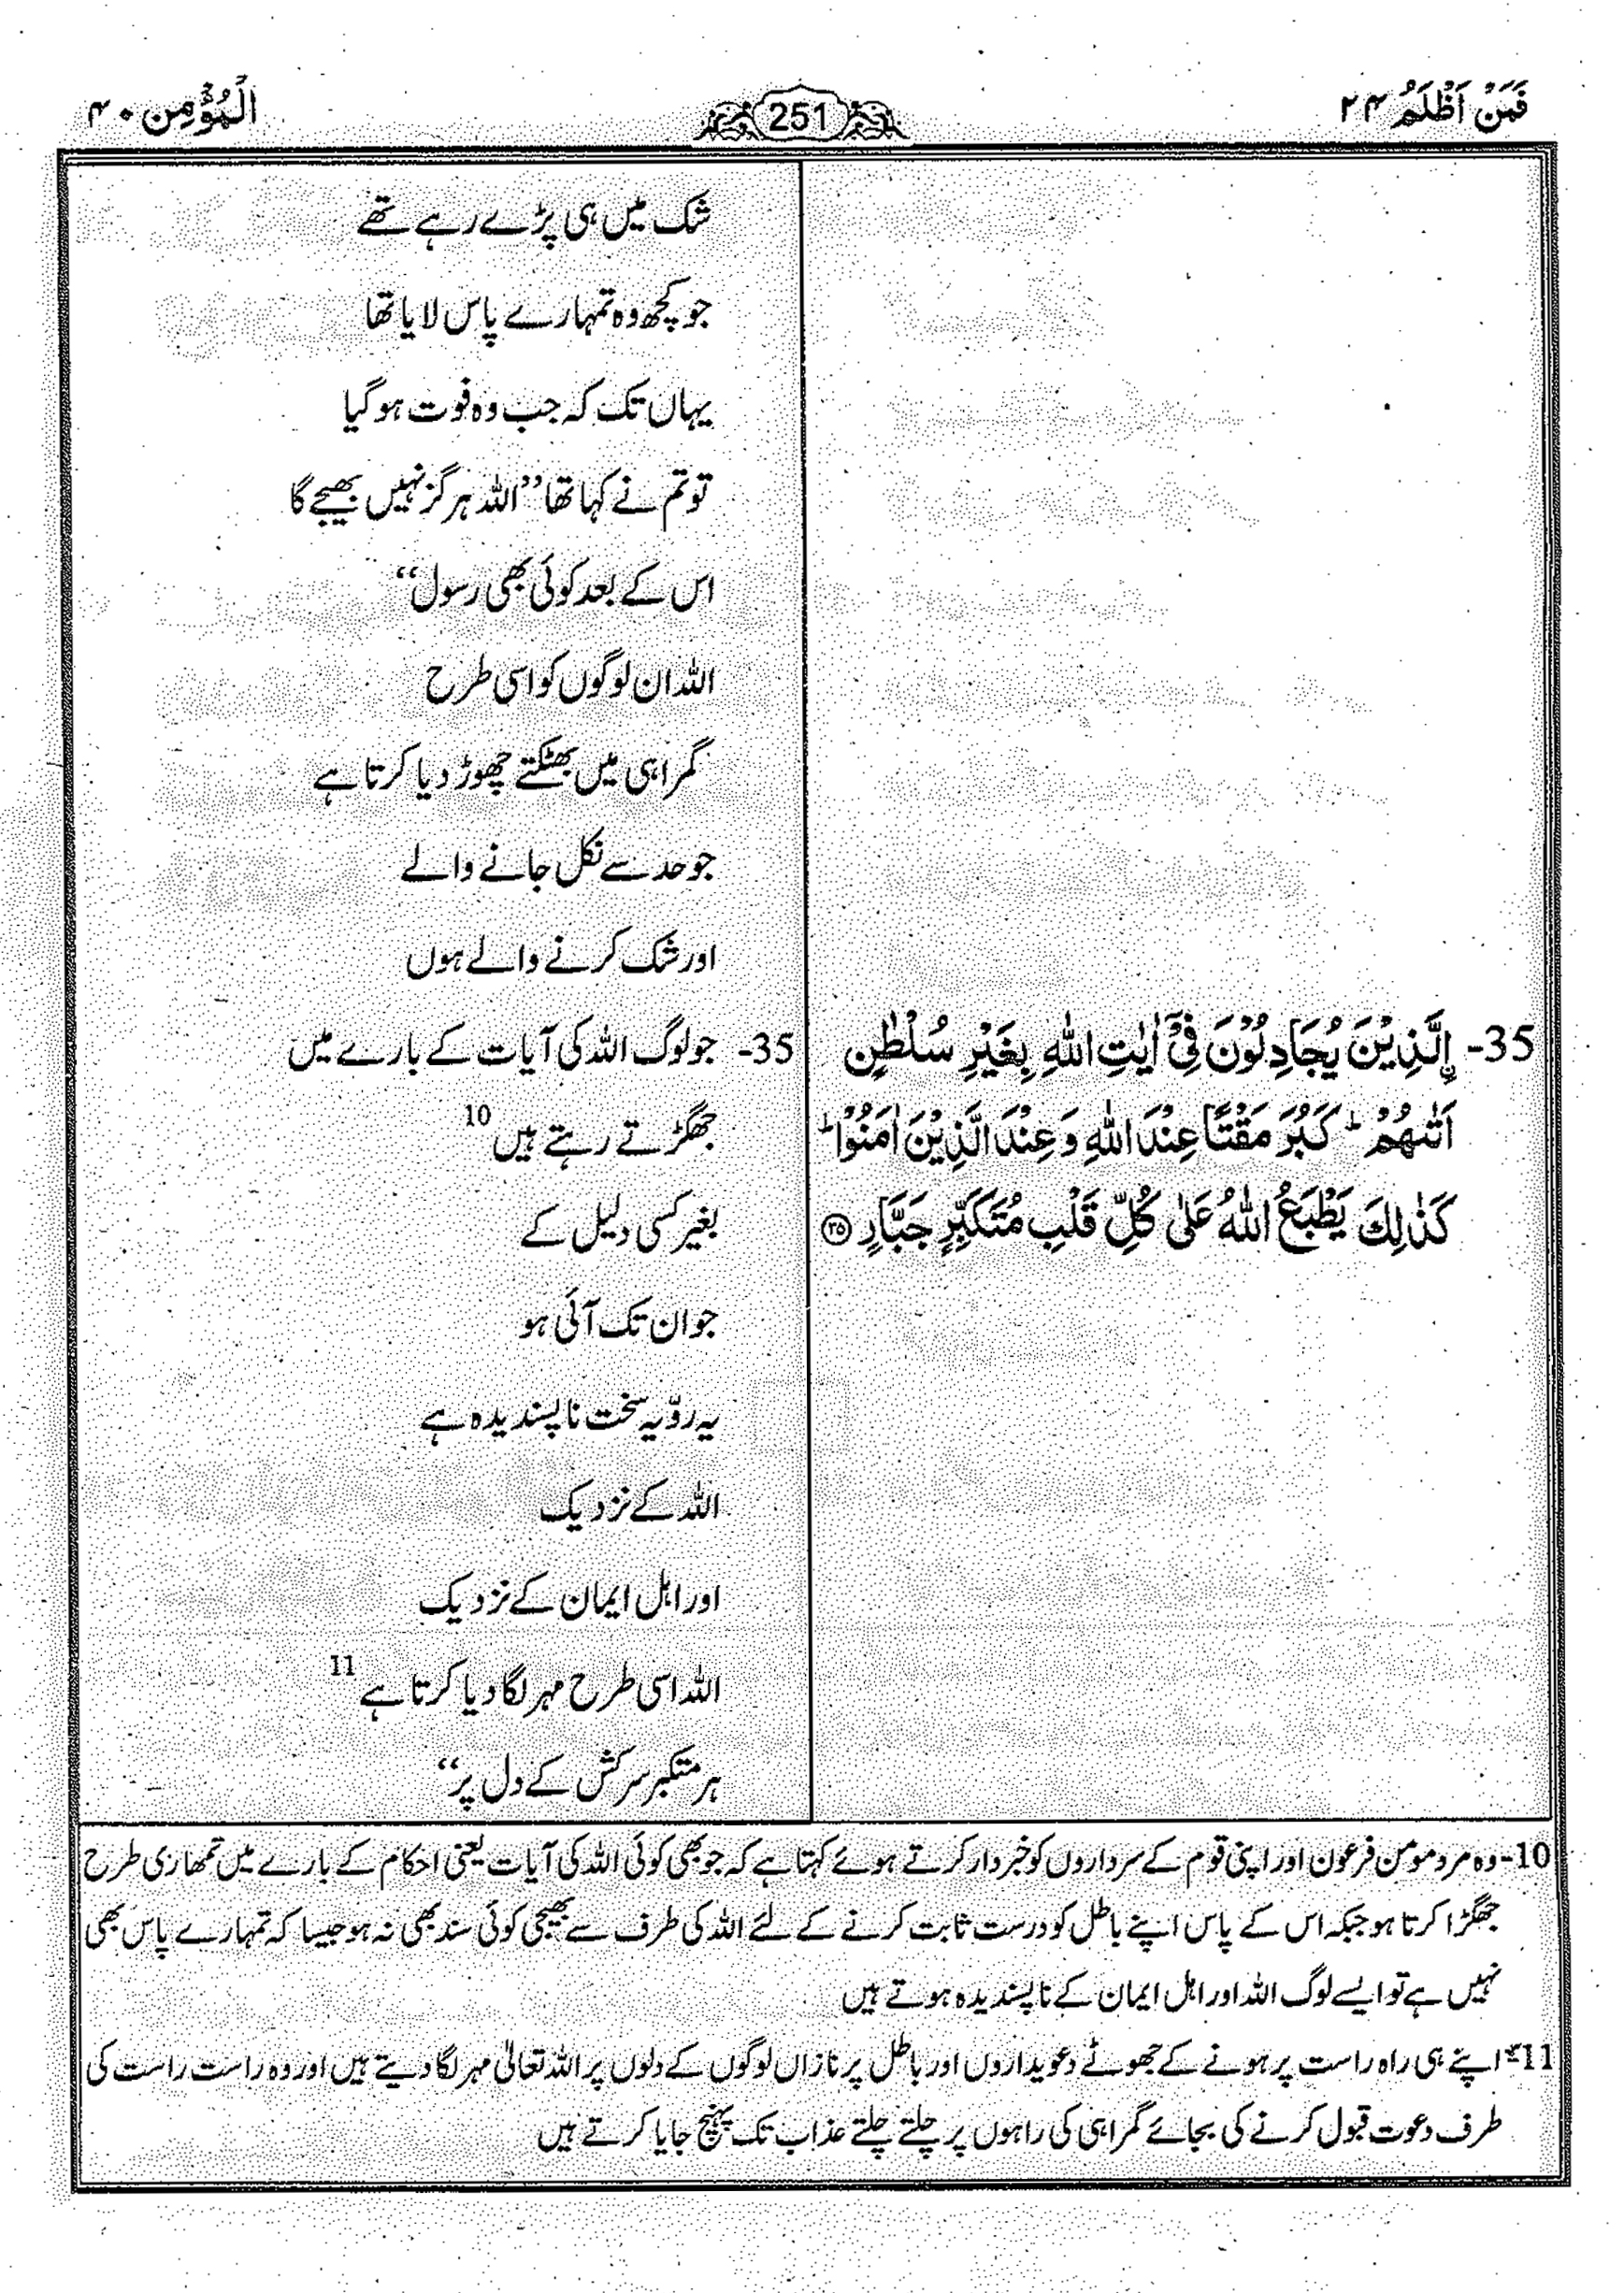 فَمَنْ اَظْلَمُ ۲۴
251
اَلْمُؤْمِن ۴۰
شک میں ہی پڑے رہے تھے
جو کچھ وہ تمہارے پاس لایا تھا
یہاں تک کہ جب وہ فوت ہو گیا
تو تم نے کہا تھا ”اللہ ہرگز نہیں بھیجے گا
اس کے بعد کوئی بھی رسول“
اللہ ان لوگوں کو اسی طرح
گمراہی میں بھٹکتے چھوڑ دیا کرتا ہے
جو حد سے نکل جانے والے
اور شک کرنے والے ہوں
35- اِۨلَّذِيْنَ يُجَادِلُوْنَ فِيْٓ اٰيٰتِ اللّٰهِ بِغَيْرِ سُلْطٰنٍ
اَتٰىهُمْ ؕ كَبُرَ مَقْتًا عِنْدَ اللّٰهِ وَ عِنْدَ الَّذِيْنَ اٰمَنُوْا ؕ
كَذٰلِكَ يَطْبَعُ اللّٰهُ عَلٰى كُلِّ قَلْبِ مُتَكَبِّرٍ جَبَّارٍ ۳۵
35- جو لوگ اللہ کی آیات کے بارے میں
جھگڑتے رہتے ہیں 10
بغیر کسی دلیل کے
جو ان تک آئی ہو
یہ روّیہ سخت ناپسندیدہ ہے
اللہ کے نزدیک
اور اہل ایمان کے نزدیک
اللہ اسی طرح مہر لگا دیا کرتا ہے 11
ہر متکبر سرکش کے دل پر“
10- وہ مرد مومن فرعون اور اپنی قوم کے سرداروں کو خبردار کرتے ہوئے کہتا ہے کہ جو بھی کوئی اللہ کی آیات یعنی احکام کے بارے میں تمھاری طرح
جھگڑا کرتا ہو جبکہ اس کے پاس اپنے باطل کو درست ثابت کرنے کے لئے اللہ کی طرف سے بھیجی کوئی سند بھی نہ ہو جیسا کہ تمہارے پاس بھی
نہیں ہے تو ایسے لوگ اللہ اور اہل ایمان کے ناپسندیدہ ہوتے ہیں
11- اپنے ہی راہ راست پر ہونے کے جھوٹے دعویداروں اور باطل پر نازاں لوگوں کے دلوں پر اللہ تعالیٰ مہر لگا دیتے ہیں اور وہ راست راست کی
طرف دعوت قبول کرنے کی بجائے گمراہی کی راہوں پر چلتے چلتے عذاب تک پہنچ جایا کرتے ہیں